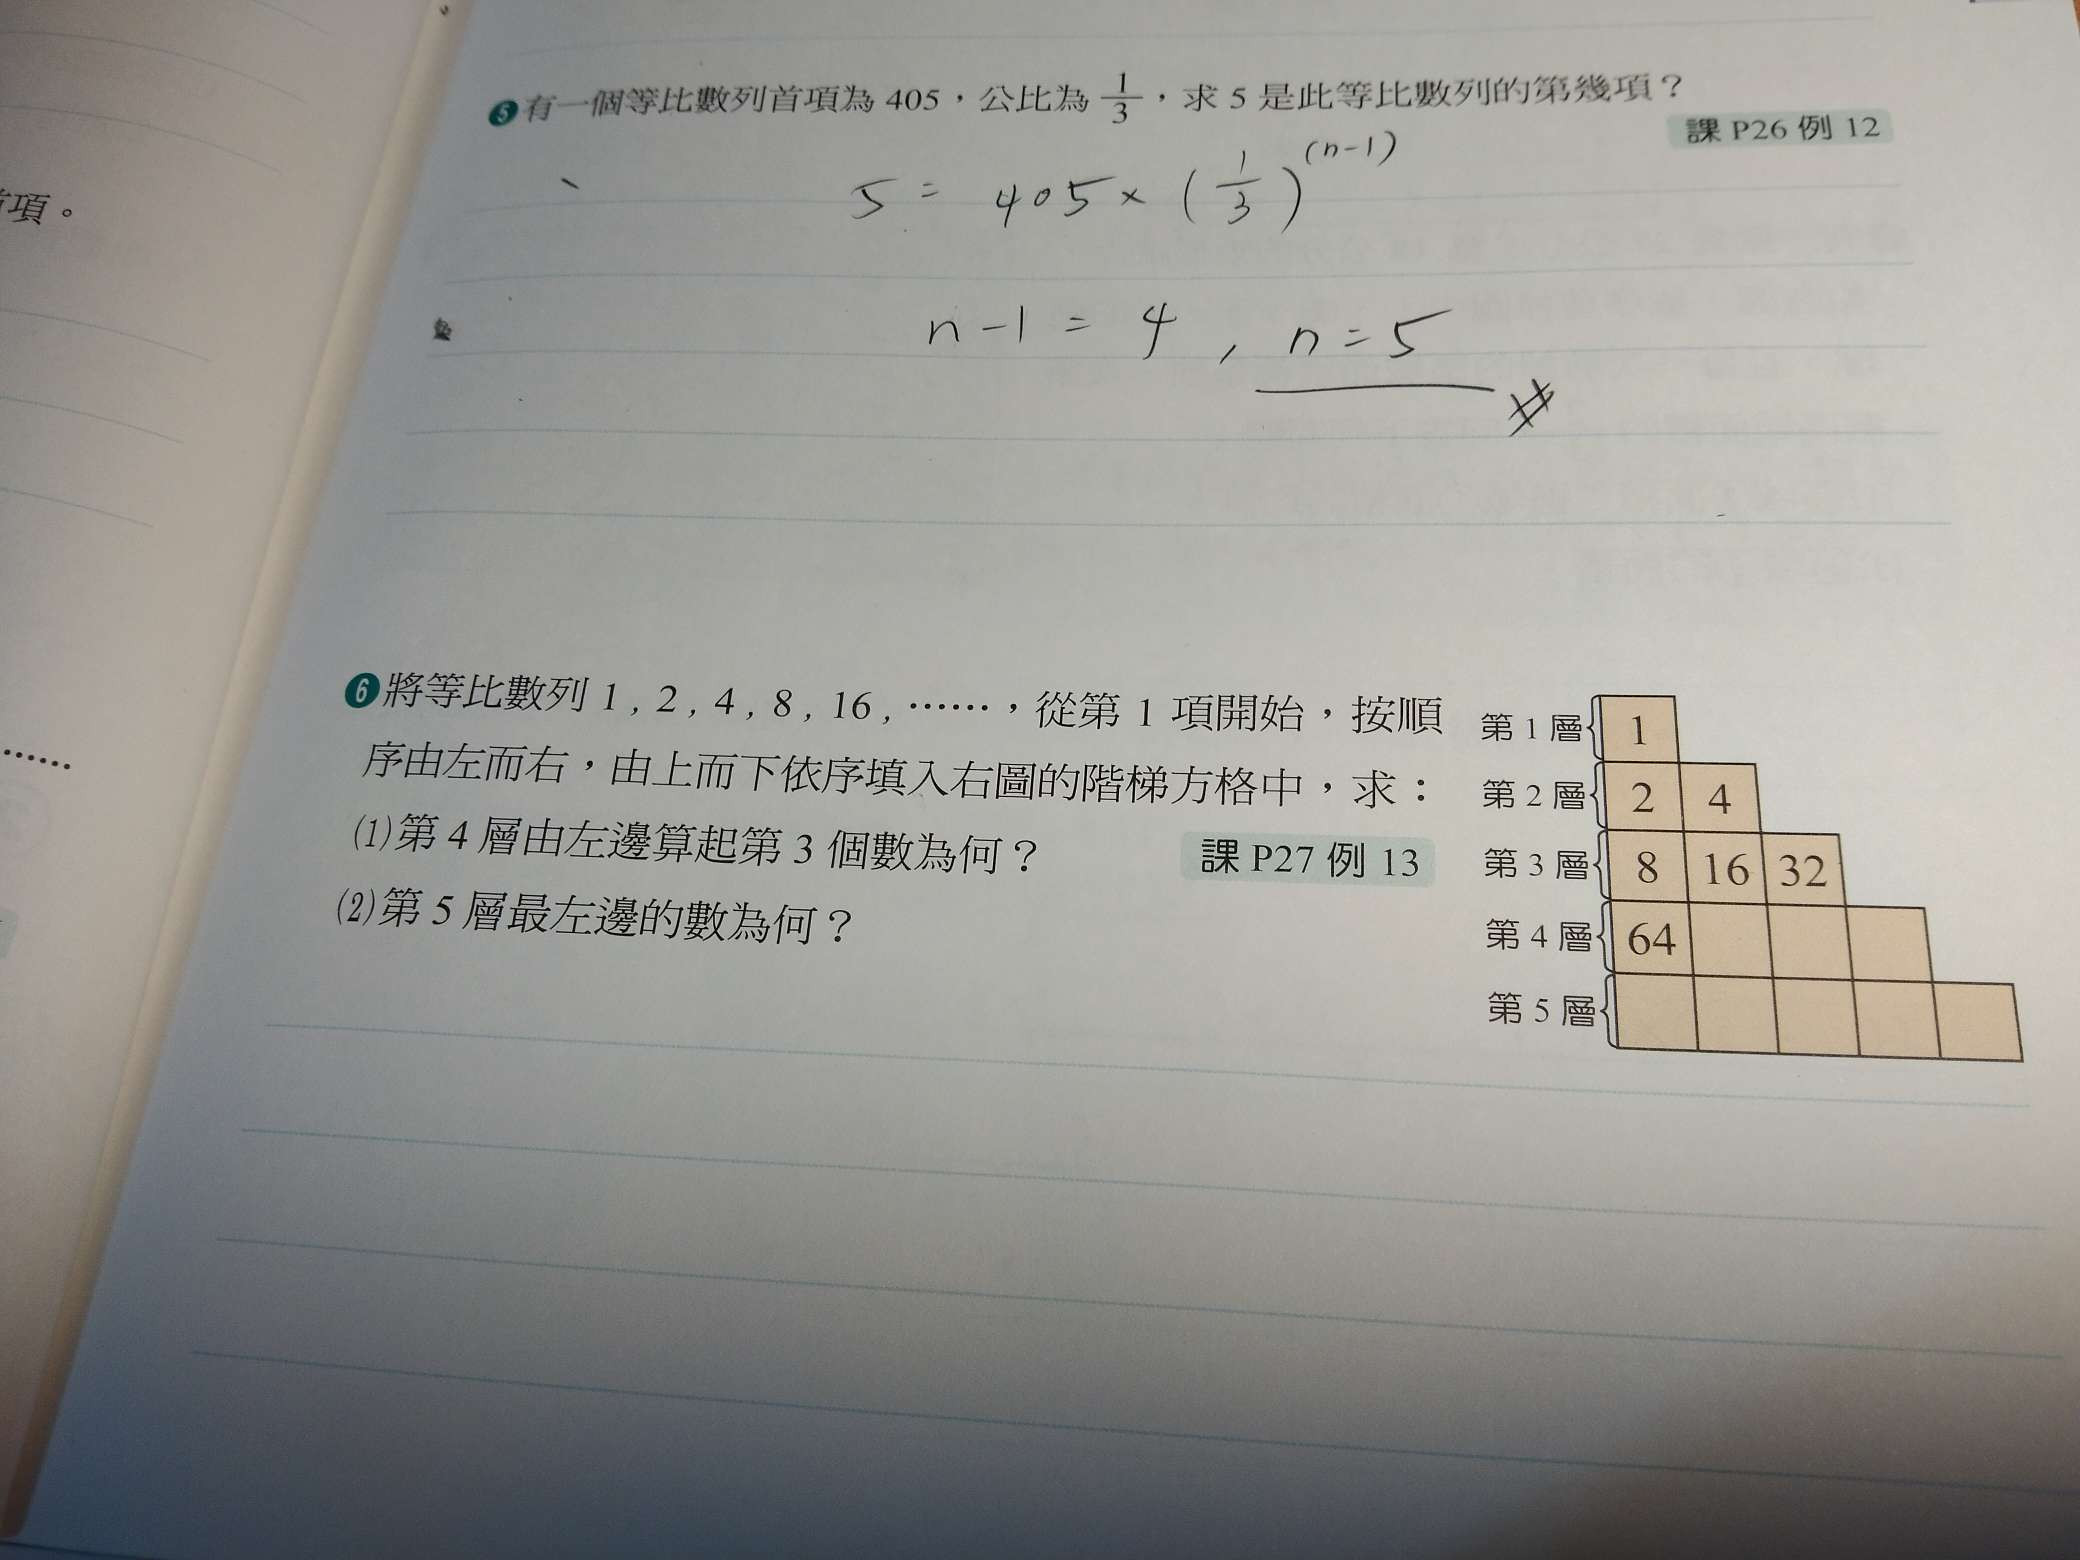 首項。
……
❺有一個等比數列首項為 405，公比為 1/3，求 5 是此等比數列的第幾項？
課 P26 例 12
5 = 405 × (1/3)^(n-1)
n-1 = 4 , n=5
❻將等比數列 1 , 2 , 4 , 8 , 16 , ……，從第 1 項開始，按順
序由左而右，由上而下依序填入右圖的階梯方格中，求：
⑴第 4 層由左邊算起第 3 個數為何？
課 P27 例 13
⑵第 5 層最左邊的數為何？
第 1 層 1
第 2 層 2 4
第 3 層 8 16 32
第 4 層 64
第 5 層